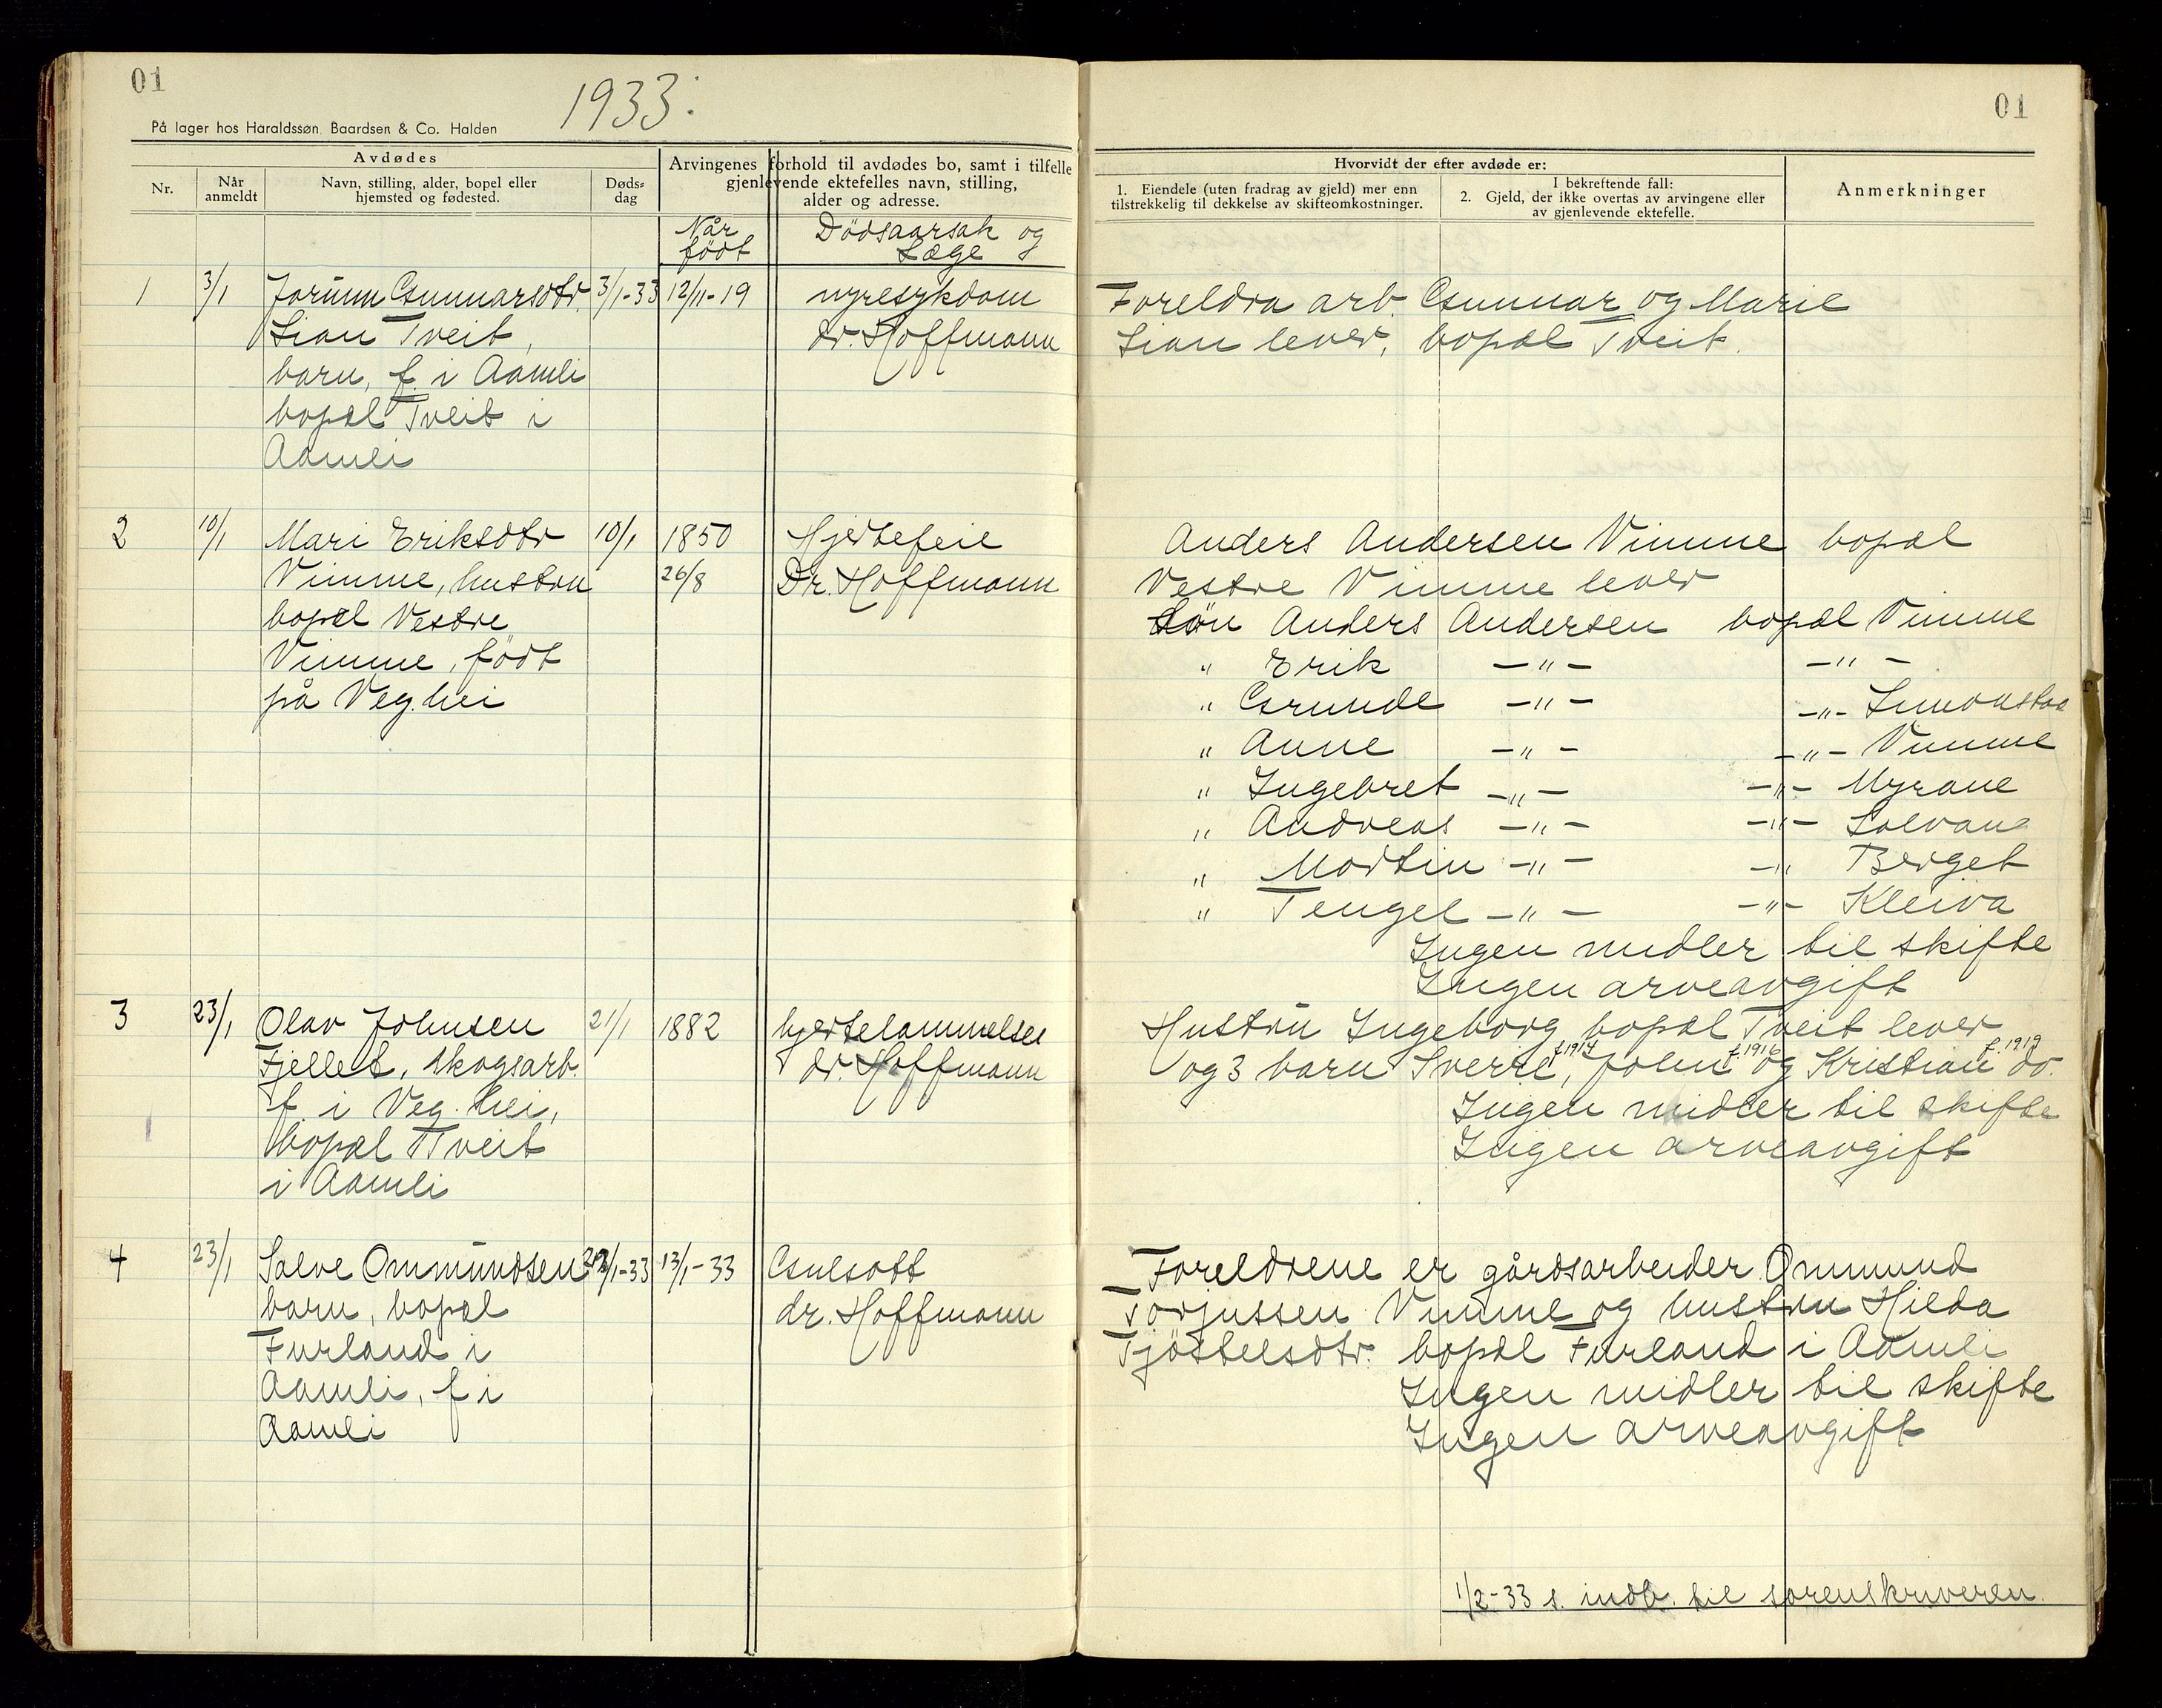 01
1933.
På lager hos Haraldssøn, Baardsen & Co. Halden
Avdødes
Nr.
Når anmeldt
Navn, stilling, alder, bopel eller hjemsted og fødested.
Døds-dag
Arvingenes forhold til avdødes bo, samt i tilfelle gjenlevende ektefelles navn, stilling, alder og adresse.
Når født
Dødsaarsak og Læge
1 3/1 Jorunn Gunnarsdtr. 3/1-33 12/11-19 nyresykdom
Lian Tveit, dr. Hoffmann
barn, f. i Aamli
bopæl Tveit i
Aamli
2 10/1 Mari Eriksdtr 10/1 1850 Hjertefeil
Vimme, hustru 26/8 Dr. Hoffmann
bopæl Vestre
Vimme, født
på Veg.hei
3 23/1 Olav Johnsen 21/1 1882 hjertelammelse
Fjellet, skogsarb. dr. Hoffmann
f. i Veg. hei,
bopæl Tveit
i Aamli
4 23/1 Salve Ommundsen 13/1-33 Gulsott
barn, bopæl dr. Hoffmann
Furland i
Aamli, f i
Aamli
01
Hvorvidt der efter avdøde er:
1. Eiendele (uten fradrag av gjeld) mer enn tilstrekkelig til dekkelse av skifteomkostninger.
I bekreftende fall:
2. Gjeld, der ikke overtas av arvingene eller av gjenlevende ektefelle.
Anmerkninger
Foreldra arb. Gunnar og Marie
Lian lever, bopæl Tveit.
Anders Andersen Vimme bopæl
Vestre Vimme lever
Søn Anders Andersen bopæl Vimme
" Erik —"— —"—
" Gunde —"— —"— Simonstad
" Anne —"— —"— Vimme
" Ingebret —"— —"— Myrane
" Andreas —"— —"—
" Martin —"— —" Berget
" Tengel —"— —"— Kleiva
Ingen midler til skifte
Ingen arveavgift
Hustru Ingeborg bopæl Tveit lever
og 3 barn Sverre, John f. 1916 og Kristian f. 1919 do.
Ingen midler til skifte
Ingen arveavgift
Foreldrene er gårdsarbeider Ommund
Torjussen Vimme og hustru Hilda
Tjøstelsdtr. bopæl Furland i Aamli
Ingen midler til skifte
Ingen arveavgift
1/2-33 s. indb. til sorenskriveren.